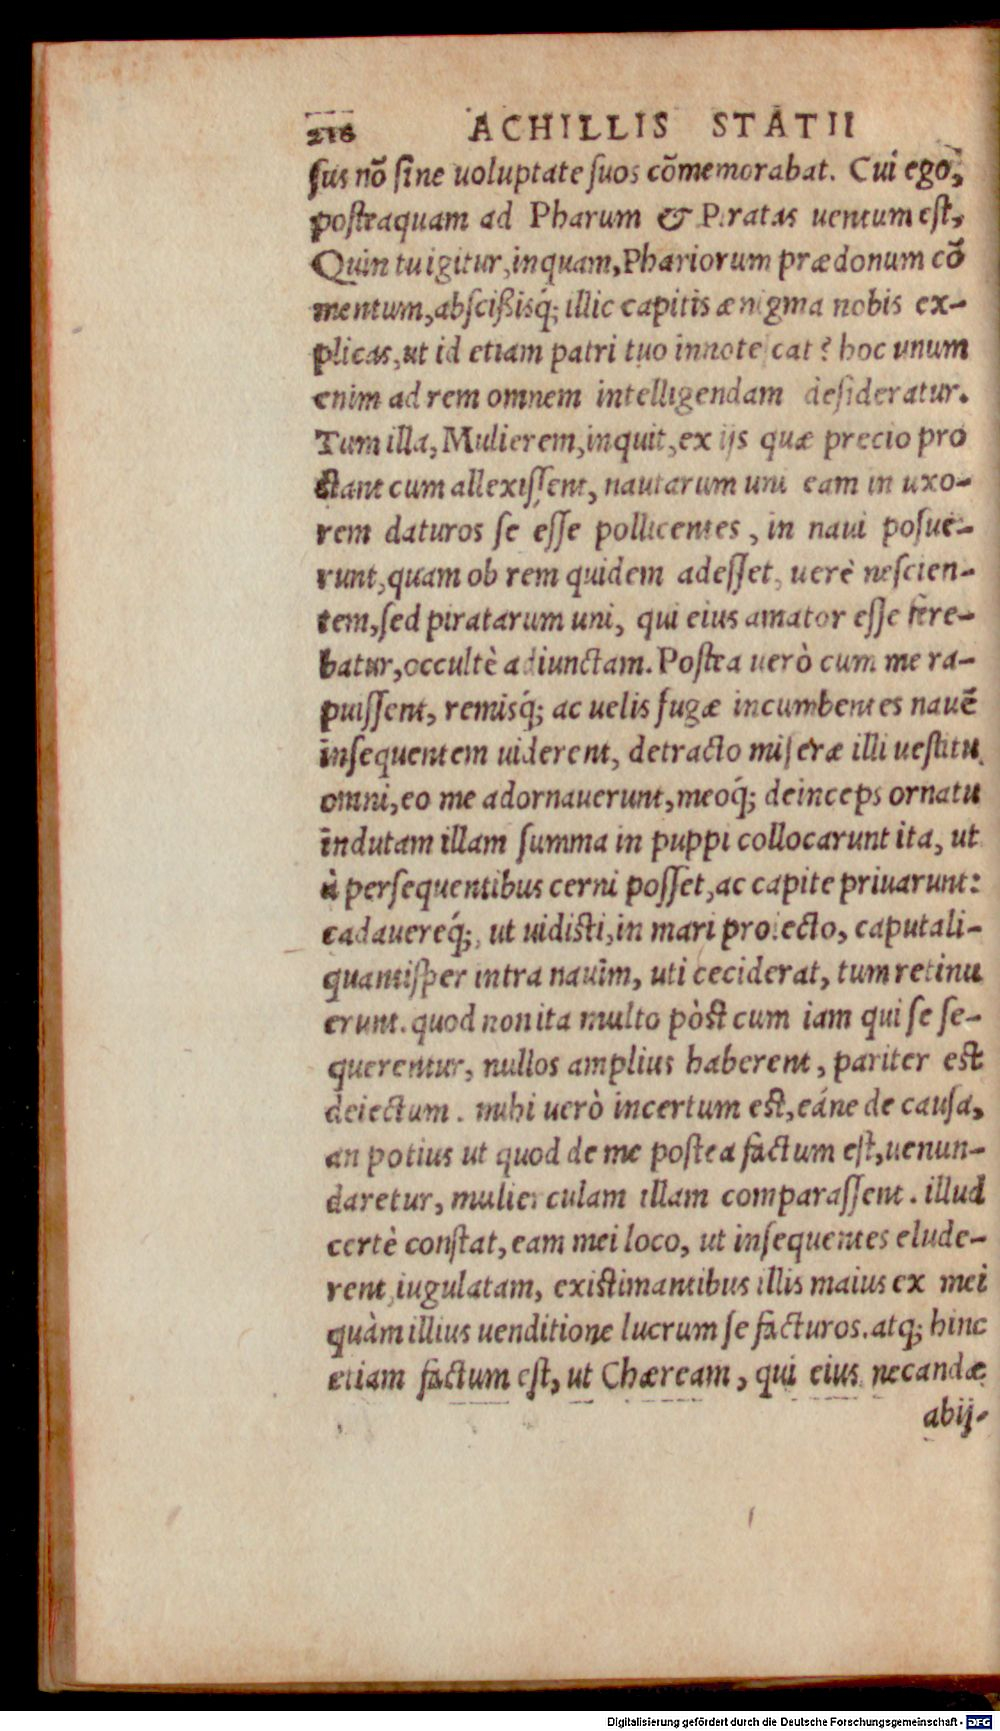 216 ACHILLIS STATII
sus nõ sine uoluptate suos cõmemorabat. Cui ego,
postraquam ad Pharum & Piratas uentum est,
Quin tu igitur, inquam, Phariorum prædonum cõ
mentum, abscißisq́; illic capitis ænigma nobis ex-
plicas, ut id etiam patri tuo innotescat? hoc unum
enim ad rem omnem intelligendam desideratur.
Tum illa, Mulierem, inquit, ex ijs quæ precio pro
stant cum allexissent, nautarum uni eam in uxo-
rem daturos se esse pollicentes, in naui posue-
runt, quam ob rem quidem adesset, uerè nescien-
tem, sed piratarum uni, qui eius amator esse fere-
batur, occultè adiunctam. Postea uerò cum me ra-
puissent, remisq́; ac uelis fugæ incumbentes nauẽ
insequentem uiderent, detracto miseræ illi uestitu
omni, eo me adornauerunt, meoq́; deinceps ornatu
indutam illam summa in puppi collocarunt ita, ut
à persequentibus cerni posset, ac capite priuarunt:
cadauereq́;, ut uidisti, in mari proiecto, caput ali-
quantisper intra nauim, uti ceciderat, tum retinu
erunt. quod non ita multo pòst cum iam qui se se-
querentur, nullos amplius haberent, pariter est
deiectum. mihi uerò incertum est, eáne de causa,
an potius ut quod de me postea factum est, uenun-
daretur, mulierculam illam comparassent. illud
certè constat, eam mei loco, ut insequentes elude-
rent, iugulatam, existimantibus illis maius ex mei
quàm illius uenditione lucrum se facturos. atq; hinc
etiam factum est, ut Chæream, qui eius necandæ
abij-
Digitalisierung gefördert durch die Deutsche Forschungsgemeinschaft - DFG